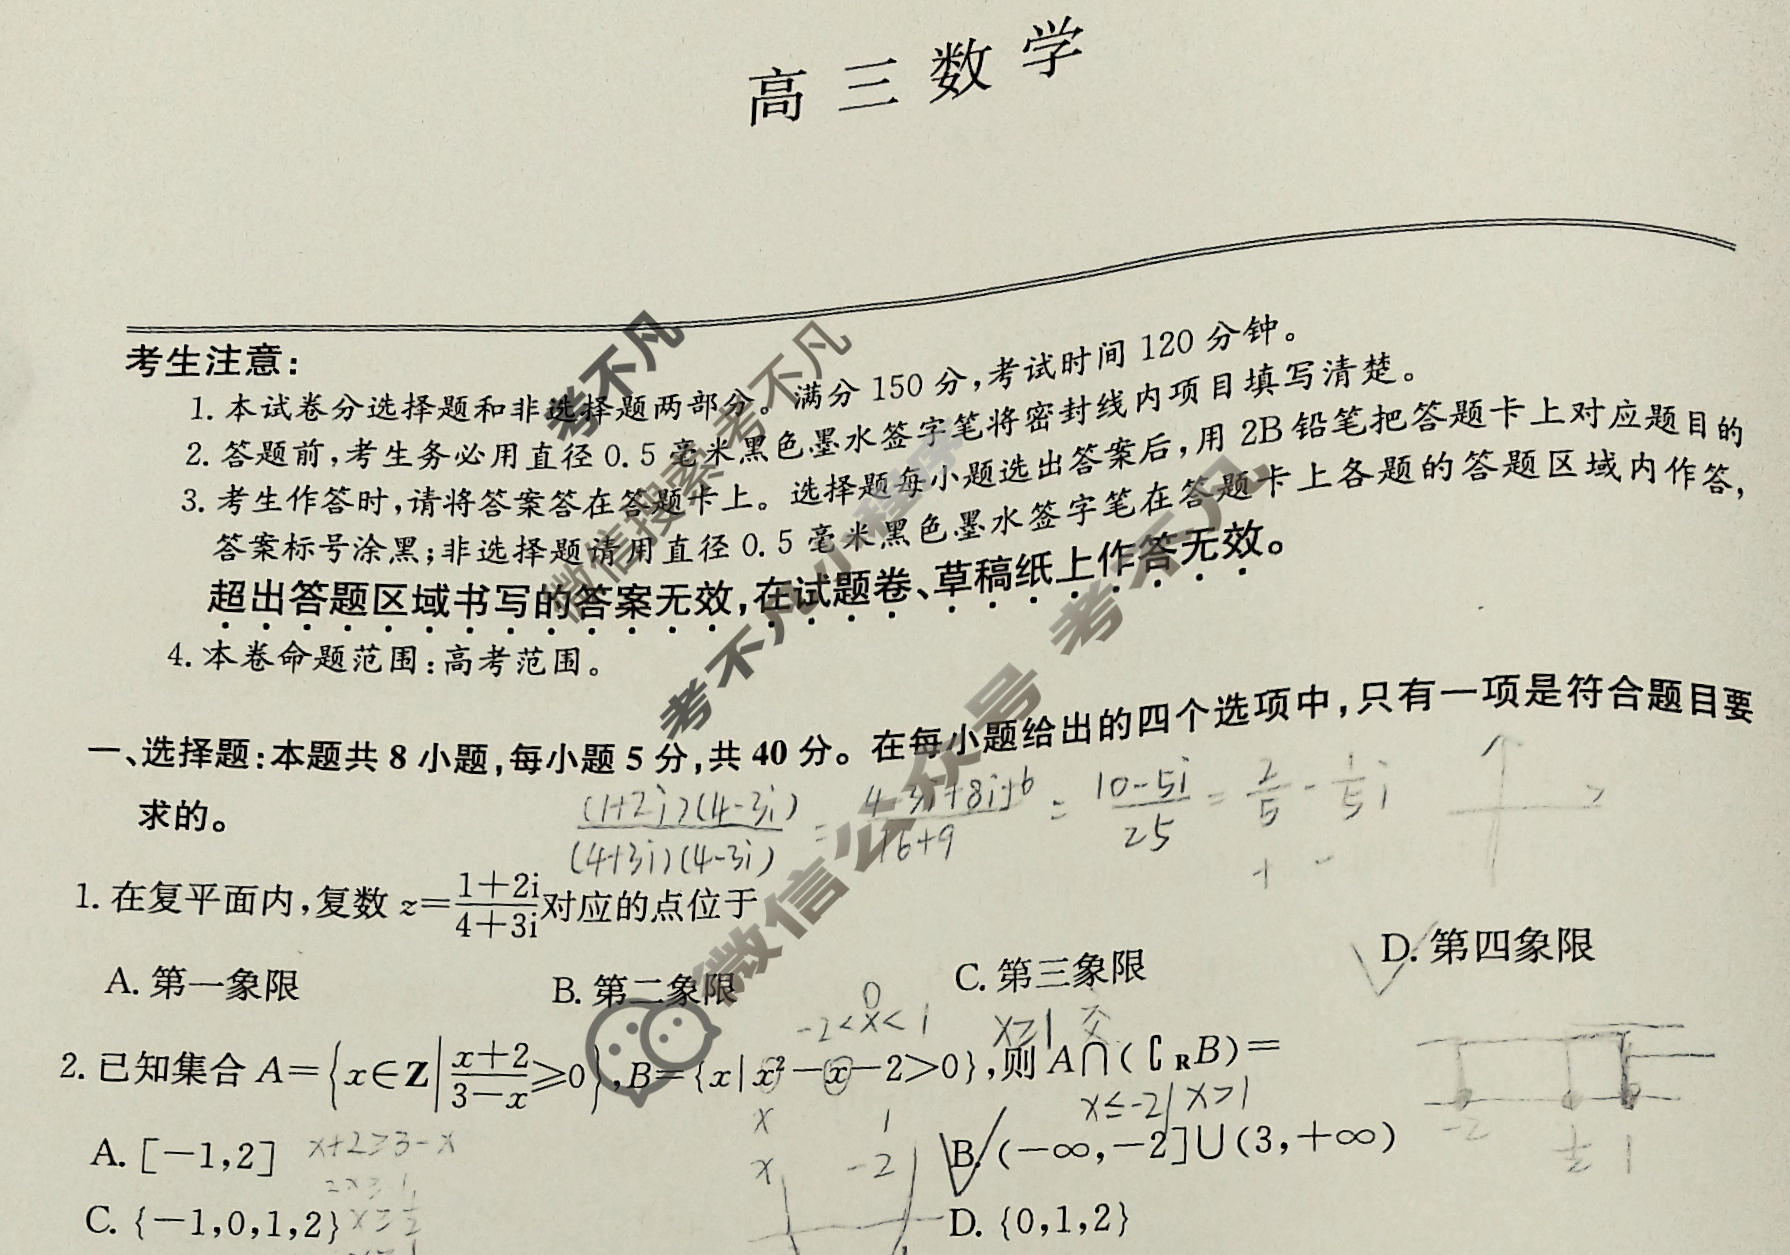 高三数学
考生注意:
1. 本试卷分选择题和非选择题两部分。满分 150 分,考试时间 120 分钟。
2. 答题前,考生务必用直径 0.5 毫米黑色墨水签字笔将密封线内项目填写清楚。
3. 考生作答时,请将答案答在答题卡上。选择题每小题选出答案后,用 2B 铅笔把答题卡上对应题目的
答案标号涂黑;非选择题请用直径 0.5 毫米黑色墨水签字笔在答题卡上各题的答题区域内作答,
超出答题区域书写的答案无效,在试题卷、草稿纸上作答无效。
4. 本卷命题范围:高考范围。
一、选择题:本题共 8 小题,每小题 5 分,共 40 分。在每小题给出的四个选项中,只有一项是符合题目要
求的。
(1+2i)(4-3i)/(4+3i)(4-3i) = 4-3i+8i+6/16+9 = 10-5i/25 = 2/5 - 1/5 i
+ -
1. 在复平面内,复数 z=1+2i/4+3i对应的点位于
A. 第一象限 B. 第二象限 C. 第三象限 D. 第四象限
-2<x<1 x≥1
2. 已知集合 A={x∈Z|x+2/3-x≥0},B={x|x²-x-2>0},则 A∩(∁RB)=
x≤-2| x>1
x 1
x -2
A. [-1,2] x+2≥3-x B. (-∞,-2]∪(3,+∞)
C. {-1,0,1,2} x≥1/2 D. {0,1,2}
-2 1/2 1
考不凡
微信搜索 考不凡
考不凡小程序
微信公众号 考不凡